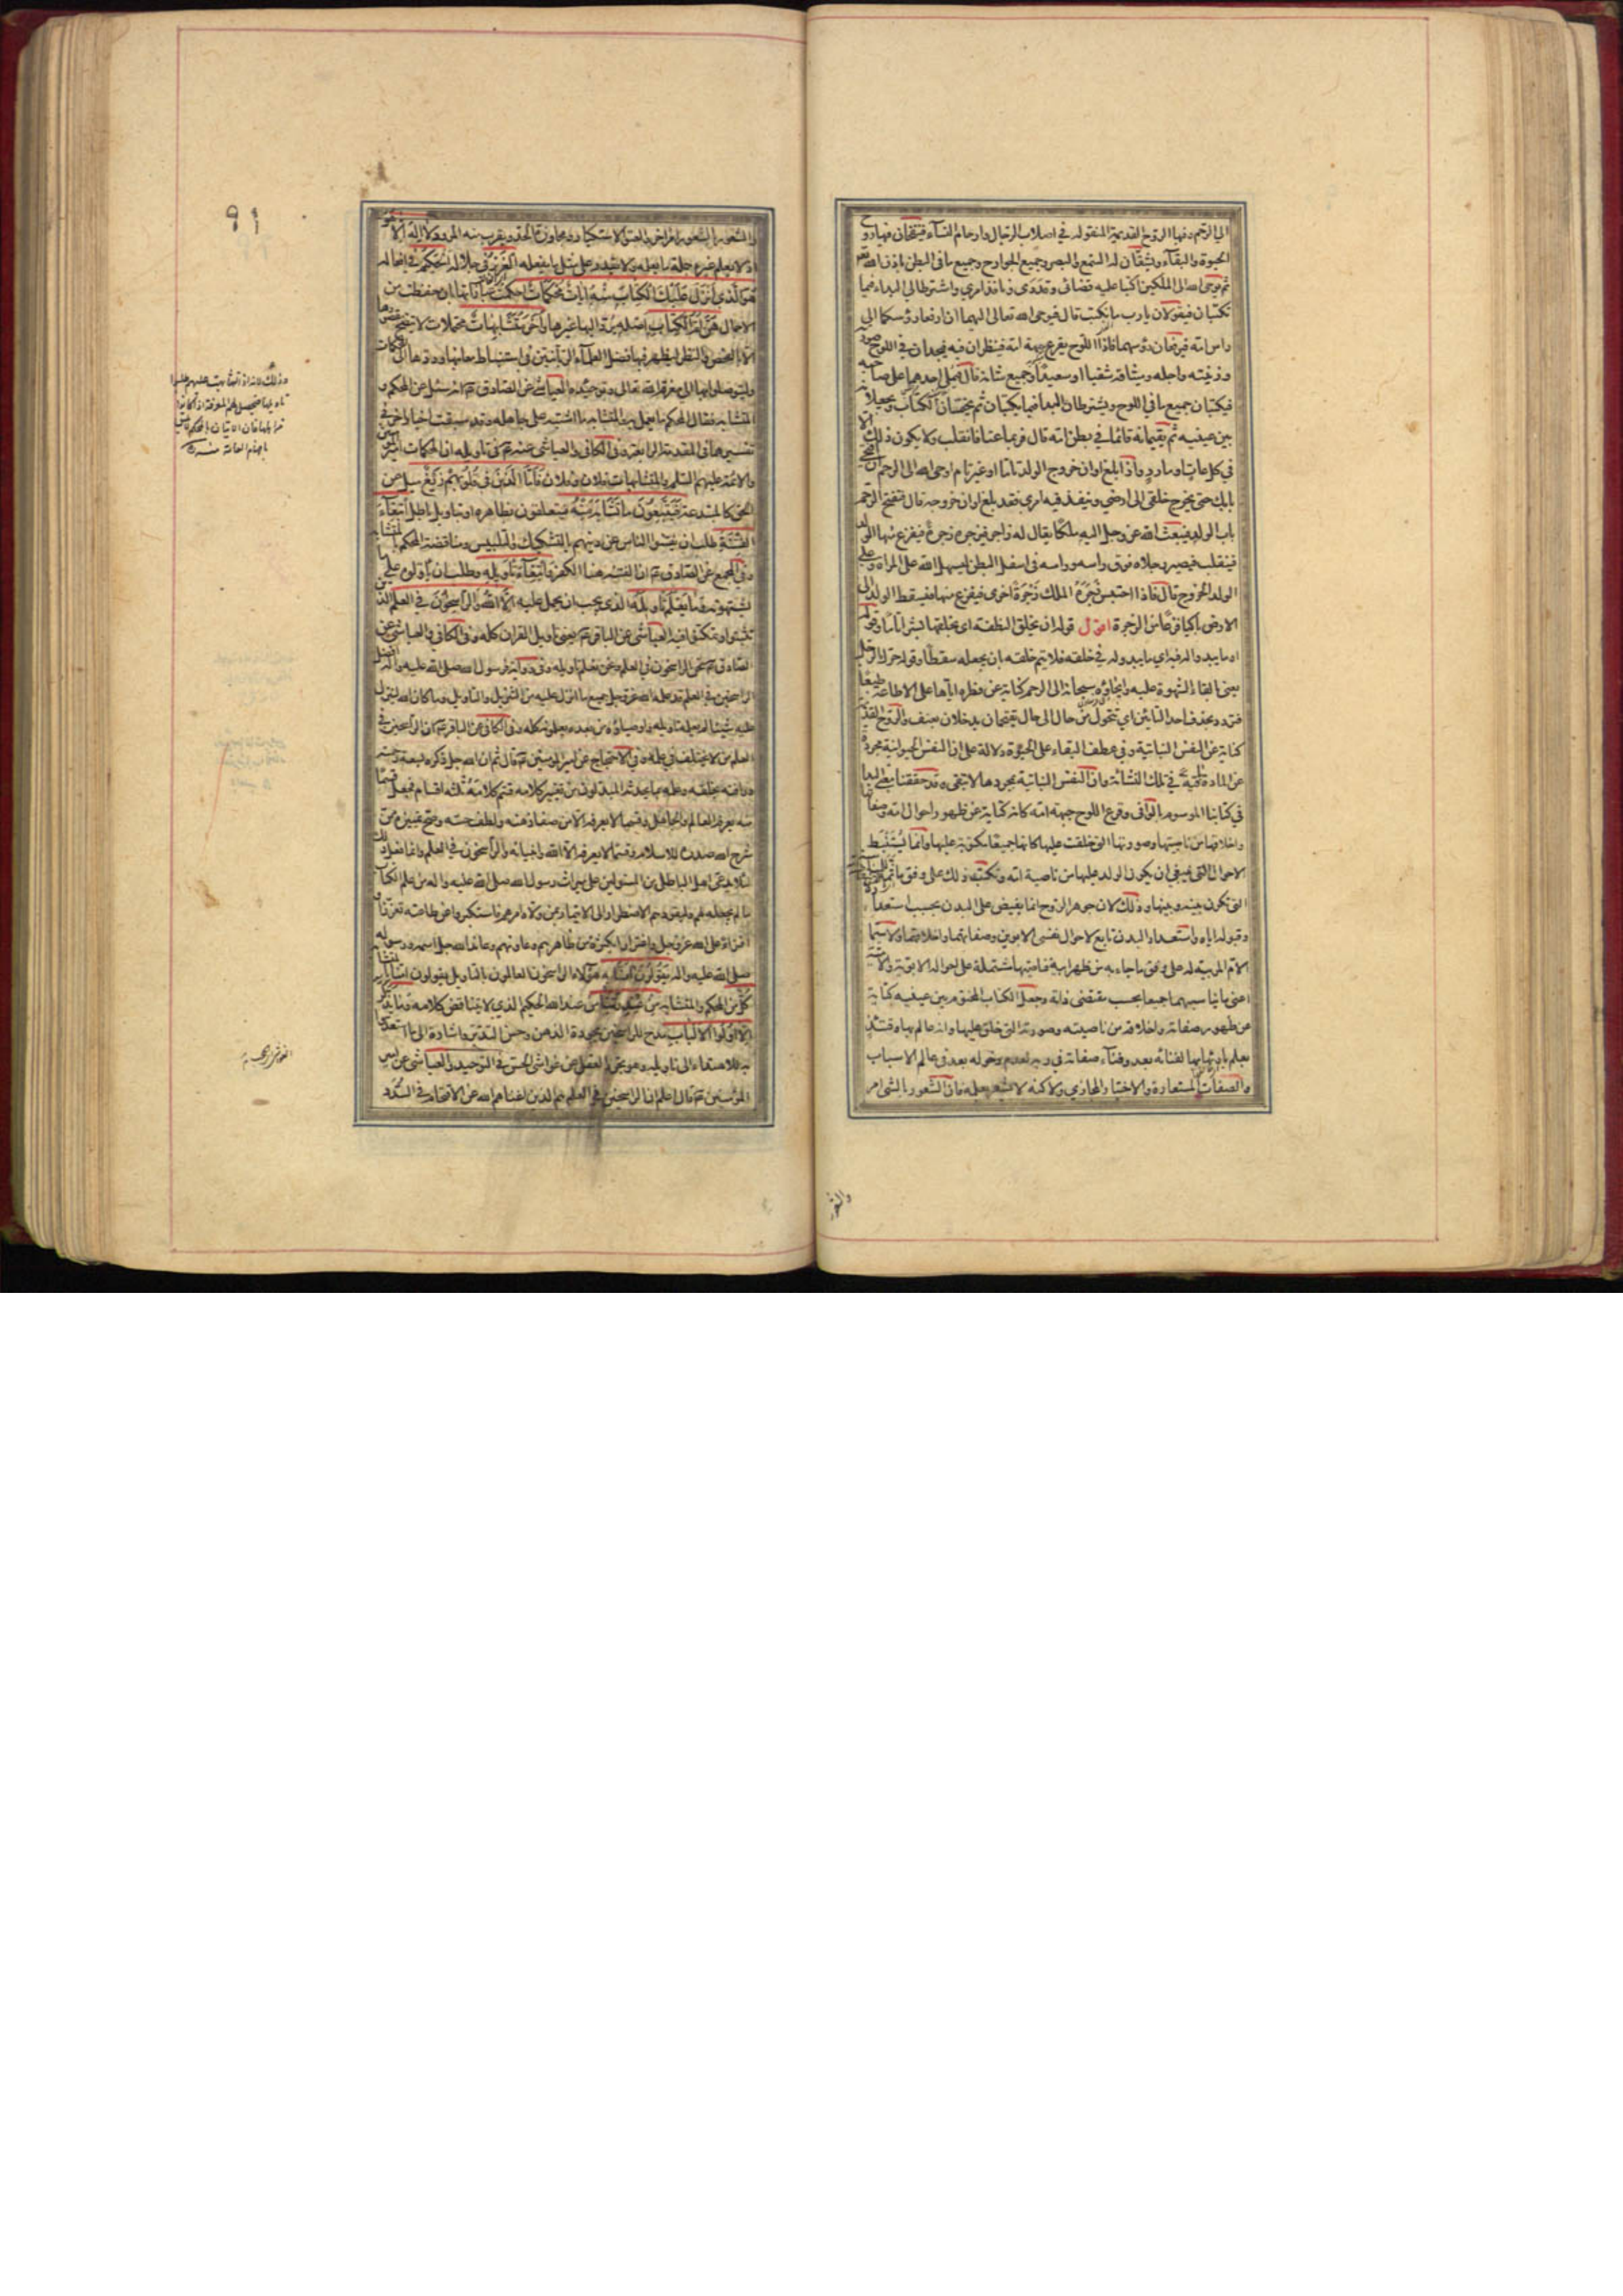 الى الرحم وفيها الروح القديمة المنقولة في اصلاب الرجال وارحام النساء فينفخان فيها روح
الحيوة والبقاء ويشقان له السمع والبصر وجميع الجوارح وجميع ما في البطن باذن الله تعالى
ثم يوحى الله الى الملكين اكتبا عليه قضائى وقدرى ونافذ امري واشترطا لي البداء فيما
تكتبان فيقولان يا رب ما نكتب قال فيوحى الله تعالى اليهما ان ارفعا رؤسكما الى
راس امه فيرفعان رؤسهما فاذا اللوح يقرع جبهة امه فينظران فيه فيجدان في اللوح صورته
وزينته واجله وميثاقه شقيا او سعيدا وجميع شانه قال فيملى احدهما على صاحبه
فيكتبان جميع ما في اللوح ويشترطان البداء فيما يكتبان ثم يختمان الكتاب ويجعلانه
بين عينيه ثم يقيمانه قائما في بطن امه قال فربما عتا فانقلب ولا يكون ذلك الا
في كل عات او مارد واذا بلغ اوان خروج الولد تاما او غير تام اوحى الله الى الرحم ان افتحى
بابك حتى يخرج خلقي الى ارضي وينفذ فيه امري فقد بلغ اوان خروجه قال فتفتح الرحم
باب الولد فيبعث الله عز وجل اليه ملكا يقال له زاجر فيزجره زجرة فيفزع منها الولد
فينقلب فيصير رجلاه فوق راسه وراسه في اسفل البطن ليسهل الله على المراة وعلى
الولد الخروج قال فاذا احتبس زجره الملك زجرة اخرى فيفزع منها فيسقط الولد الى
الارض باكيا فزعا من الزجرة اقول قوله ان يخلق النطفة اى يخلقها بشرا تاما وقوله
او ما يبدو له فيه اي ما يبدو له في خلقه فلا يتم خلقه بان يجعله سقطا وقوله حرك الرجل
يعنى بالقاء الشهوة عليه وايحاؤه سبحانه الى الرحم كناية عن فطره اياها على الاطاعة طبعا
فتردد بحذف احد التائين اي تتحول من حال الى حال يقتحمان يدخلان بعنف والروح القديمة
كناية عن النفس النباتية وفي عطف البقاء على الحيوة دلالة على ان النفس الحيوانية مجردة
عن المادة باقية في تلك النشاة وان النفس النباتية بمجردها لا تبقى وقد حققنا معنى البداء
في كتابنا الموسوم بالوافى وقرع اللوح جبهة امه كانه كناية عن ظهور احوال امه وصفاتها
واخلاقها من ناصيتها وصورتها التي خلقت عليها كانها جميعا مكتوبة عليها وانما يستنبط
الاحوال التي ينبغي ان يكون الولد عليها من ناصية امه وتكتب ذلك على وفق ما ثمة للمناسبة
التي تكون بينه وبينها وذلك لان جوهر الروح انما يفيض على البدن بحسب استعداده
وقبوله اياه واستعداد البدن تابع لاحوال نفسى الابوين وصفاتهما واخلاقهما ولا سيما
الام المربية له على وفق ما جاء به من ظهر ابيه فناصيتها مشتملة على احواله الابوية والامية
اعنى ما يناسبهما جميعا بحسب مقتضى ذاته وجعل الكتاب المختوم بين عينيه كناية
عن ظهور صفاته واخلاقه من ناصيته وصورته التي خلق عليها وانه عالم بها وقتئذ
بعلم بارئها بها لفنائه بعد وفناء صفاته في ربه لعدم دخوله بعد في عالم الاسباب
والصفات المستعارة والاختيار المجازي ولاكنه لا يشعر بعلمه فان الشعور بالشئ امر
والشعور
والشعور بالشعور امر اخر والعتو الاستكبار ومجاوزة الحد ويقرب منه المرود لا اله الا هو
اذ لا يعلم غيره جملة ما يعلمه ولا يقدر على مثل ما يفعله العزيز في جلاله الحكيم في افعاله
هو الذي انزل عليك الكتاب منه ايات محكمات احكمت عباراتها بان حفظت من
الاجمال هن ام الكتاب اصله يرد اليها غيرها واخر متشابهات محتملات لا يتضح مقصودها
الا بالفحص والنظر ليظهر فيها فضل العلماء الربانيين في استنباط معانيها وردها الى المحكمات
وليتوصلوا بها الى معرفة الله تعالى وتوحيده العياشي عن الصادق ع انه سئل عن المحكم و
المتشابه فقال المحكم ما يعمل به والمتشابه ما اشتبه على جاهله وقد سبقت اخبار اخر في
تفسيرهما في المقدمة الرابعة وفي الكافي والعياشي عنه ع في تاويله ان المحكمات امير المؤمنين
والائمة عليهم السلم والمتشابهات فلان وفلان فاما الذين في قلوبهم زيغ ميل عن
الحق كالمبتدعة فيتبعون ما تشابه منه فيتعلقون بظاهره او بتاويل باطل ابتغاء
الفتنة طلب ان يفتنوا الناس عن دينهم بالتشكيك والتلبيس ومناقضة المحكم بالمتشابه
وفي المجمع عن الصادق ع ان الفتنة هنا الكفر وابتغاء تاويله وطلب ان ياولوه على ما
يشتهونه وما يعلم تاويله الذي يجب ان يحمل عليه الا الله والراسخون في العلم الذين
تثبتوا وتمكنوا فيه العياشي عن الباقر ع يعني تاويل القران كله وفي الكافي والعياشي عن
الصادق ع نحن الراسخون في العلم ونحن نعلم تاويله وفي رواية فرسول الله صلى الله عليه واله افضل
الراسخين في العلم قد علمه الله عز وجل جميع ما انزل عليه من التنزيل والتاويل وما كان الله لينزل
عليه شيئا لم يعلمه تاويله واوصياؤه من بعده يعلمونه كله وفي الكافي عن الباقر ع ان الراسخين في
العلم من لا يختلف في علمه وفي الاحتجاج عن امير المؤمنين ع قال ثم ان الله جل ذكره بسعة رحمته
ورافته بخلقه وعلمه بما يحدثه المبدلون من تغيير كلامه قسم كلامه ثلثة اقسام فجعل قسما
منه يعرفه العالم والجاهل وقسما لا يعرفه الا من صفا ذهنه ولطف حسه وصح تمييزه ممن
شرح الله صدره للاسلام وقسما لا يعرفه الا الله وانبيائه والراسخون في العلم وانما فعل ذلك
لئلا يدعى اهل الباطل من المستولين على ميراث رسول الله صلى الله عليه واله من علم الكتاب
ما لم يجعله لهم وليقودهم الاضطرار الى الايتمار بمن ولاه امرهم فاستكبروا عن طاعته تعززا و
افتراء على الله عز وجل واغترارا بكثرة من ظاهرهم وعاونهم وعاند الله جل اسمه ورسوله
صلى الله عليه واله يقولون امنا به هؤلاء الراسخون العالمون بالتاويل يقولون امنا بالمتشابه
كل من المحكم والمتشابه من عند ربنا من عند الله الحكيم الذي لا يتناقض كلامه وما يذكر
الا اولوا الالباب مدح للراسخين بجودة الذهن وحسن التدبر واشارة الى ما استعدوا
به للاهتداء الى تاويله وهو تجرد العقل عن غواشي الحس في التوحيد والعياشي عن امير
المؤمنين ع قال اعلم ان الراسخين في العلم هم الذين اغناهم الله عن الاقتحام في السدد
٩١